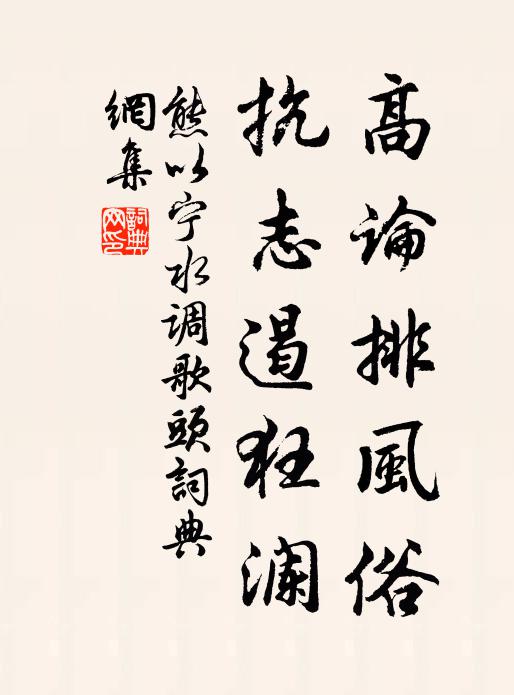 高論排風俗
抗志遏狂瀾
熊以宁水调歌頭詞典
網集
詞典网印